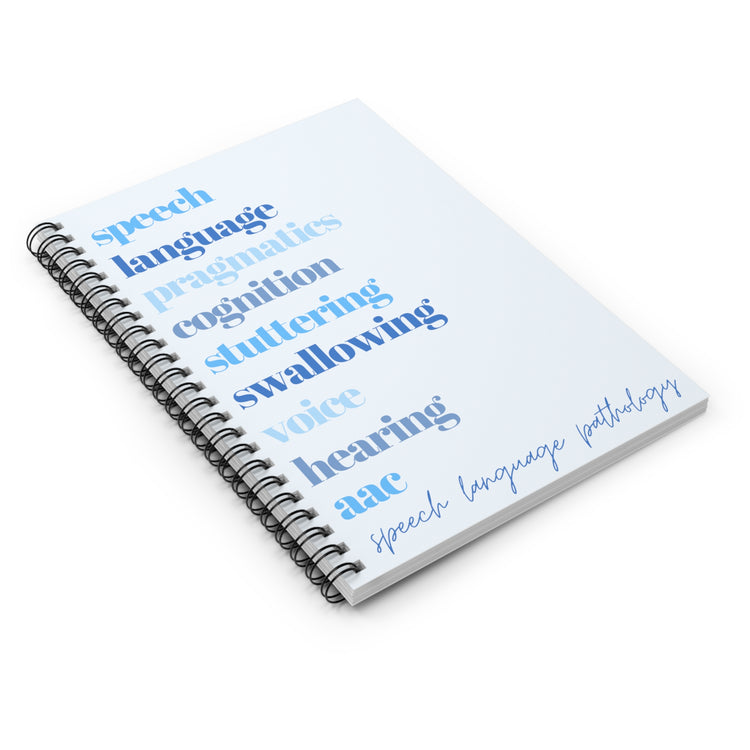 speech
language
pragmatics
cognition
stuttering
swallowing
voice
hearing
aac
speech language pathology